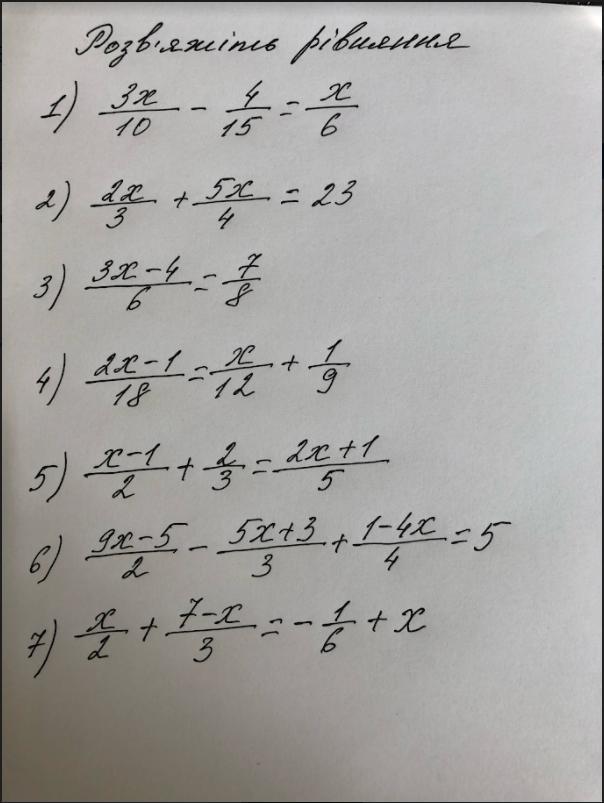 Розв'яжіть рівняння
1) 3x/10 - 4/15 = x/6
2) 2x/3 + 5x/4 = 23
3) (3x-4)/6 = 7/8
4) (2x-1)/18 = x/12 + 1/9
5) (x-1)/2 + 2/3 = (2x+1)/5
6) (9x-5)/2 - (5x+3)/3 + (1-4x)/4 = 5
7) x/2 + (7-x)/3 = -1/6 + x